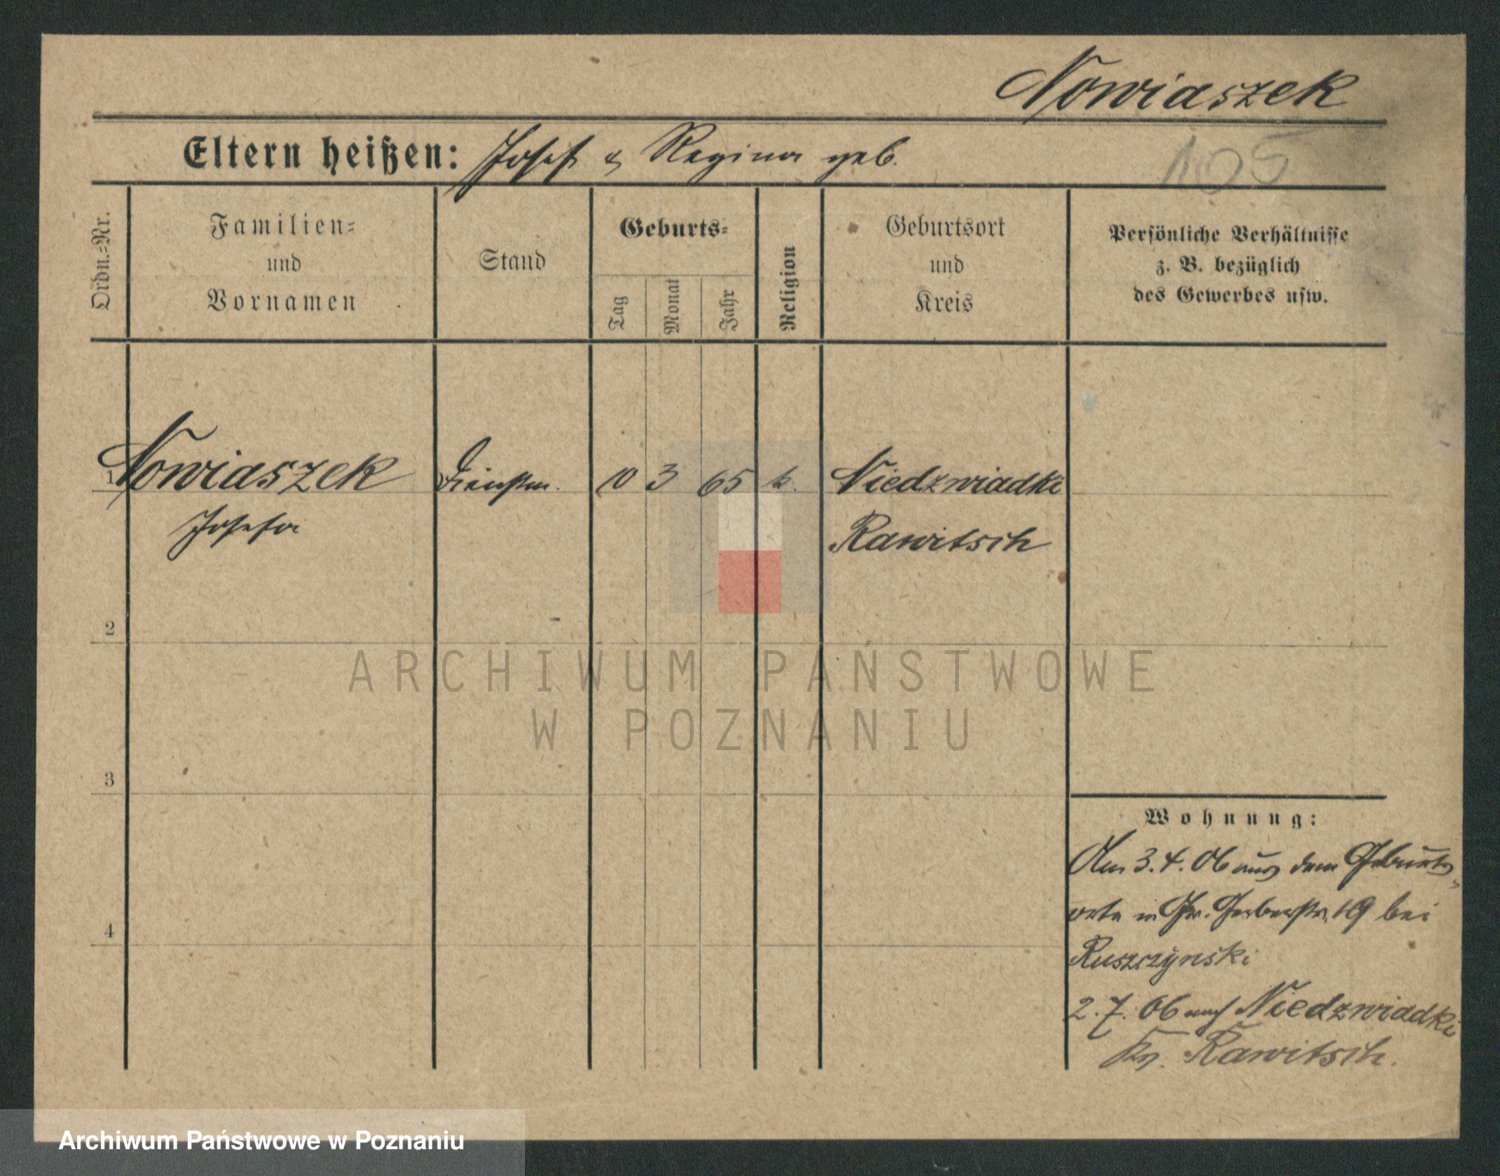 Nowiaszek
Eltern heißen: Josef & Regina geb.
105
Ordn.-Nr.
Familien-
und
Vornamen
Stand
Geburts-
Tag
Monat
Jahr
Religion
Geburtsort
und
Kreis
Persönliche Verhältnisse
z. B. bezüglich
des Gewerbes usw.
1 Nowiaszek Dienstm. 10 3 65 k. Niedzwiadki
Josefa Rawitsch
2
3
4
Wohnung:
Am 3.4.06 aus dem Geburts-
orte in Gr. Gerberstr. 19 bei
Ruszczynski
2.7.06 nach Niedzwiadki
Kr. Rawitsch.
ARCHIWUM PAŃSTWOWE
W POZNANIU
Archiwum Państwowe w Poznaniu